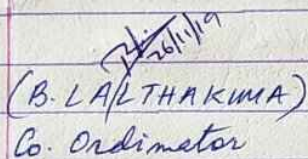 26/11/19
(B. LALTHAKIMA)
Co. Ordimator